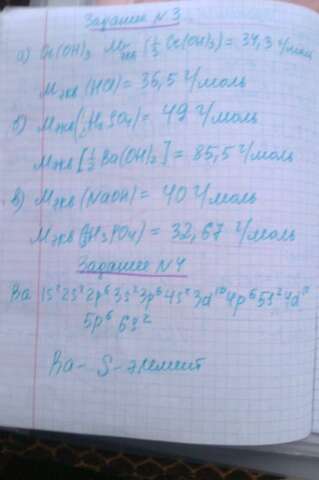 Задание N 3
а) Cr(OH)3 Mэкв (1/3 Cr(OH)3) = 34,3 г/моль
Mэкв (HCl) = 36,5 г/моль
б) Mэкв (1/2 H2SO4) = 49 г/моль
Mэкв [1/2 Ba(OH)2] = 85,5 г/моль
в) Mэкв (NaOH) = 40 г/моль
Mэкв (1/3 H3PO4) = 32,67 г/моль
Задание N 4
Ba 1s² 2s² 2p⁶ 3s² 3p⁶ 4s² 3d¹⁰ 4p⁶ 5s² 4d¹⁰
5p⁶ 6s²
Ba - S - элемент